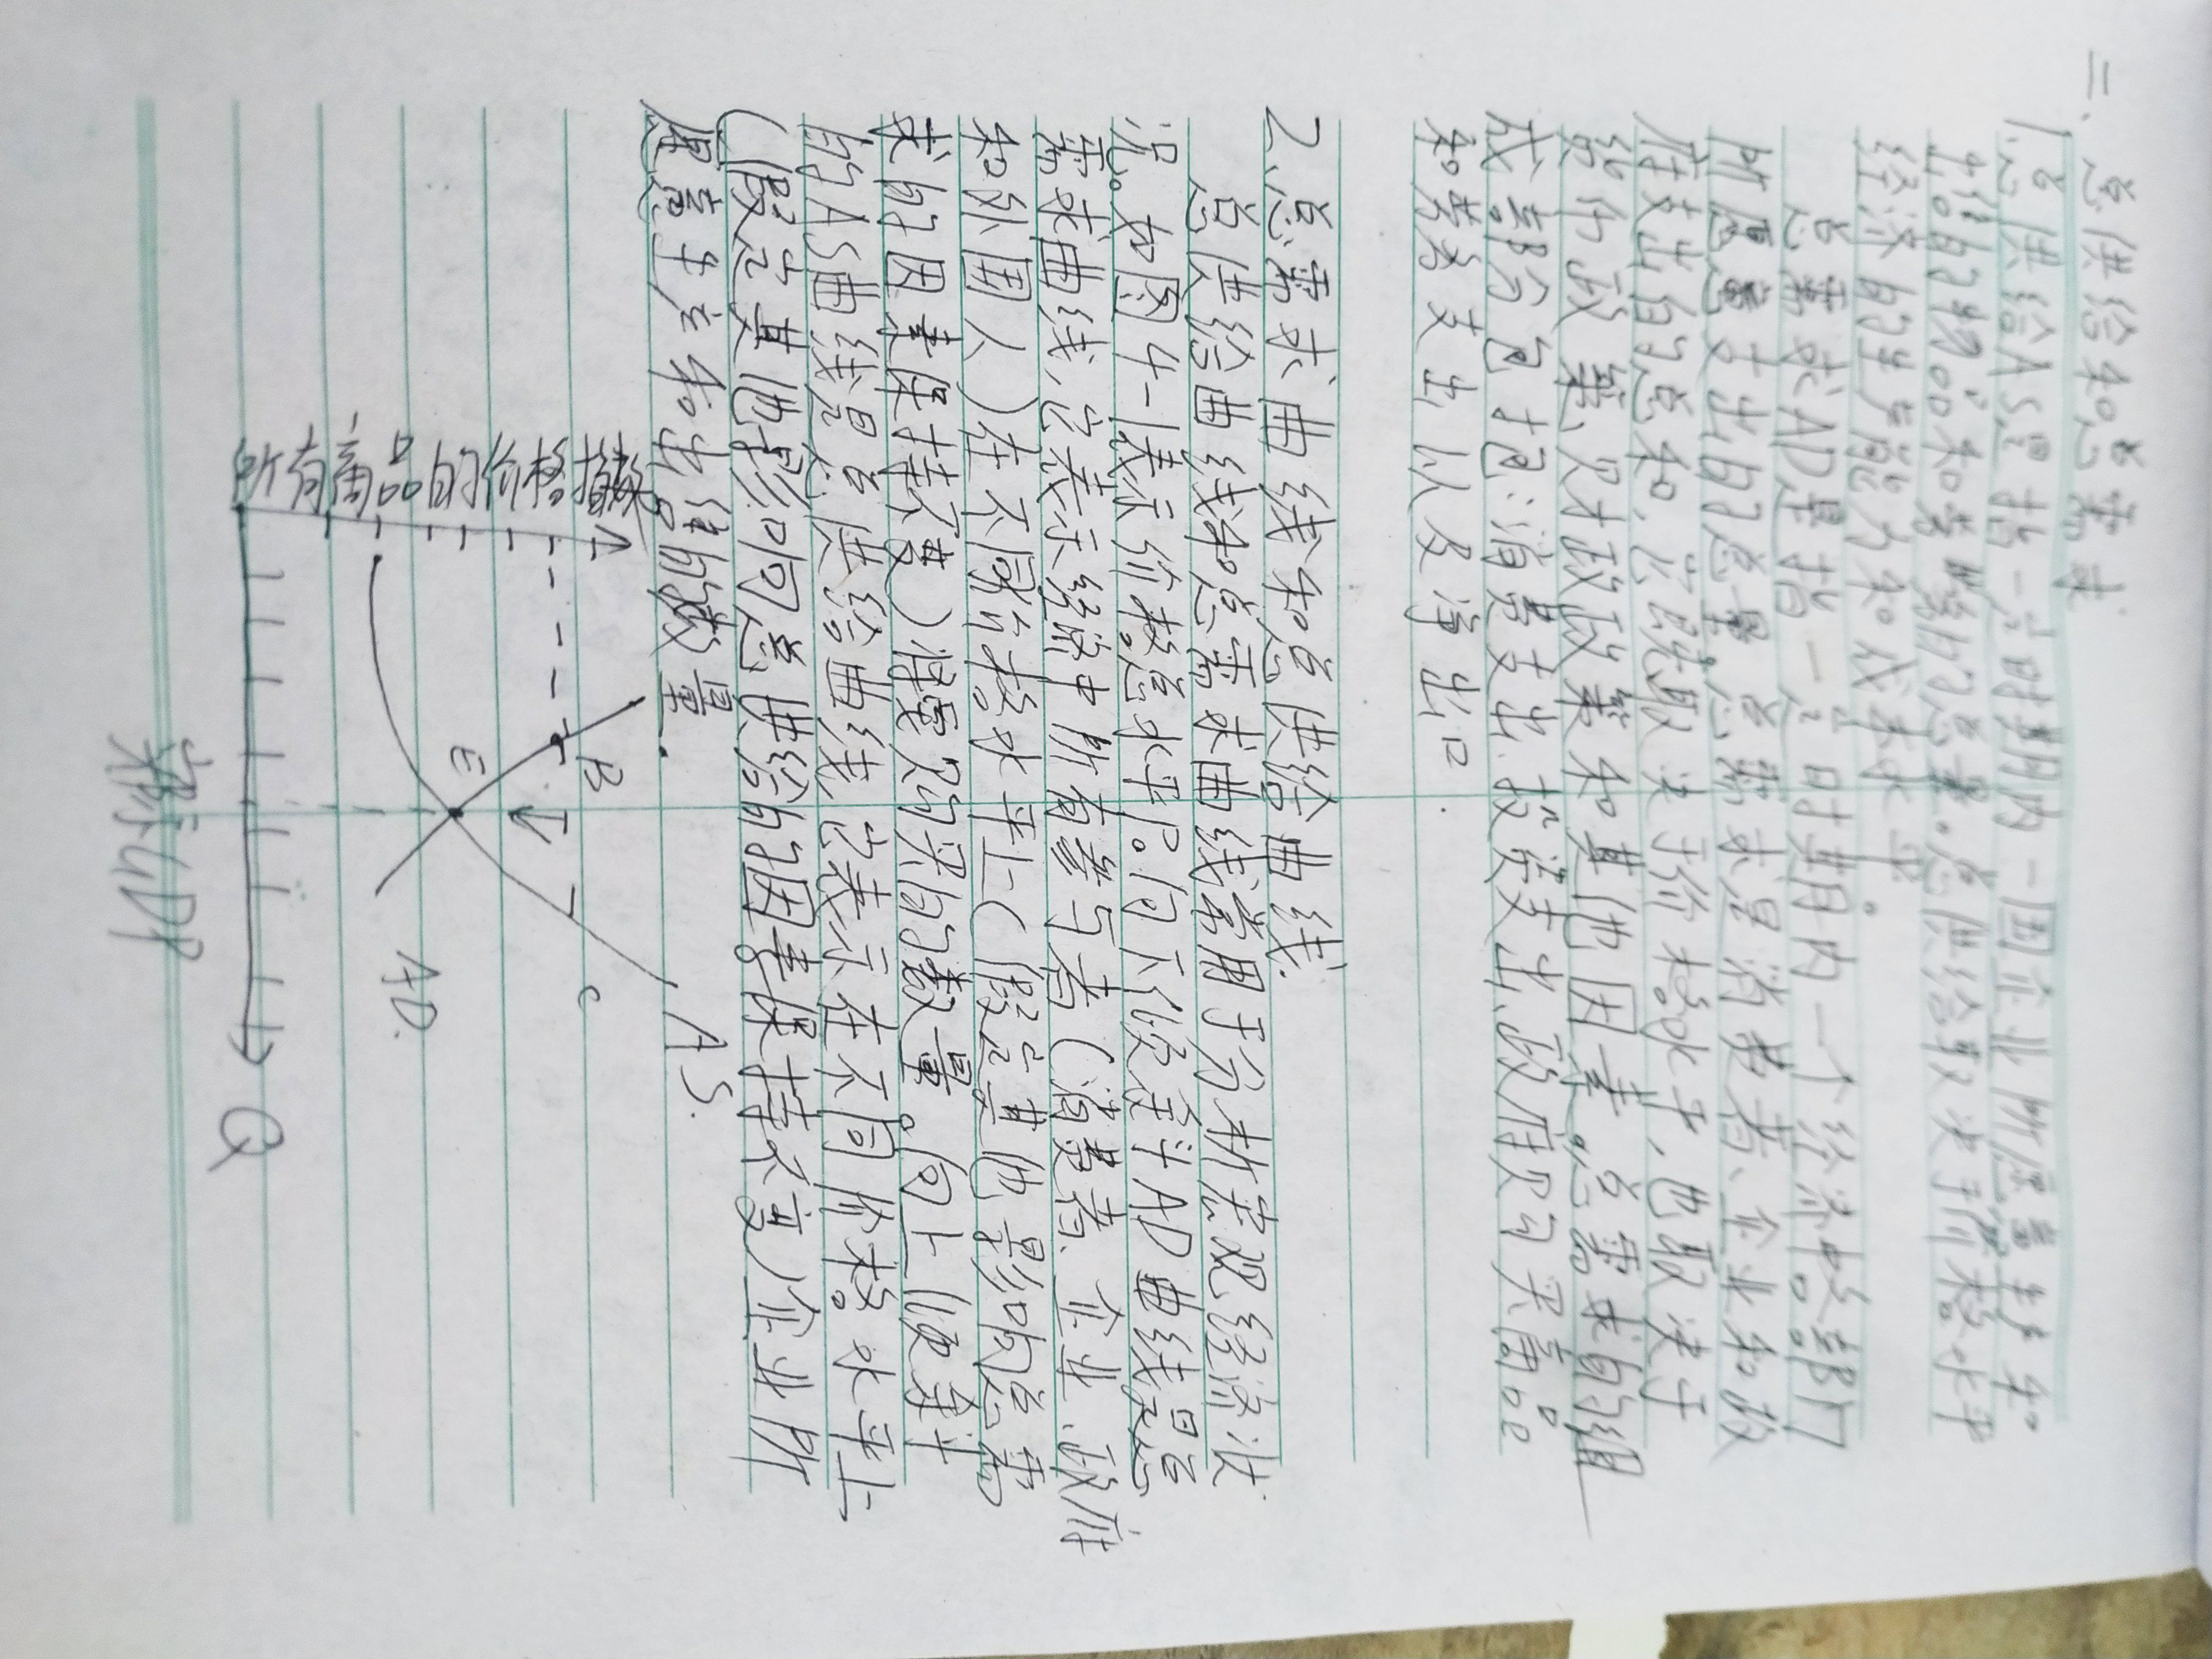 三、总供给和总需求
1.总供给AS是指一定时期内一国企业所愿意生产和
出售的物品和劳务的总量。总供给取决于价格水平
经济的生产能力和成本水平
总需求AD是指一定时期内一个经济中各部门
所愿意支出的总量。总需求是消费者、企业和政
府支出的总和，它既取决于价格水平，也取决于
货币政策、财政政策和其他因素。总需求的组
成部分包括：消费支出、投资支出、政府购买商品
和劳务支出以及净出口.
2、总需求曲线和总供给曲线
总供给曲线和总需求曲线常用于分析宏观经济状
况。如图4-1表示价格总水平P。向下倾斜AD曲线是总
需求曲线，它表示经济中所有参与者（消费者、企业、政府
和外国人）在不同价格水平上（假定其他影响总需
求的因素保持不变）将要购买的数量。向上倾斜
的AS曲线是总供给曲线它表示在不同价格水平上
（假定其他影响总供给的因素保持不变）企业所
愿意生产和出售的数量.
所有商品的价格指数
B
C
AS.
E
AD.
Q